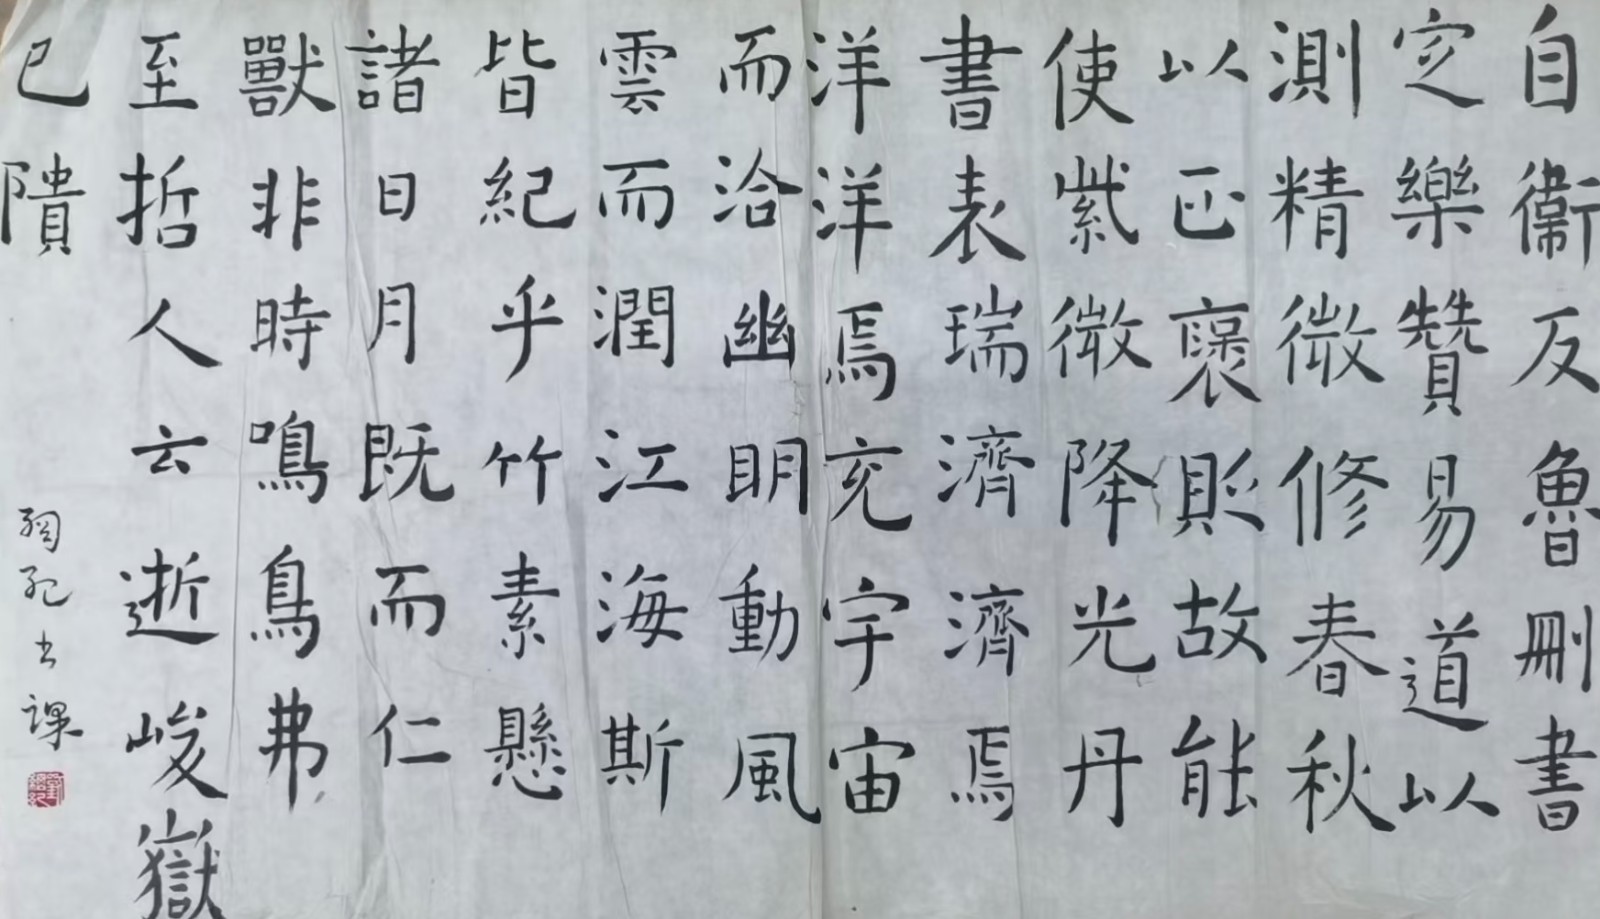 自衞反魯刪書
定樂贊易道以
測精微修春秋
以正褒貶故能
使紫微降光丹
書表瑞濟濟焉
洋洋焉充宇宙
而洽幽明動風
雲而潤江海斯
皆紀乎竹素懸
諸日月既而仁
獸非時鳴鳥弗
至哲人云逝峻嶽
已隤
書課